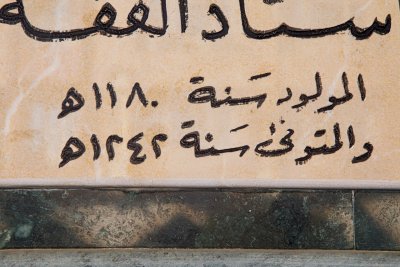 ستاذ الفقه
المولود سَنة ١١٨٠ه
والمتوفى سَنة ١٢٤٢ه